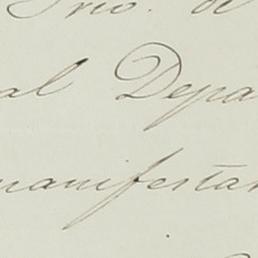 Srio. de
al Depa
manifestar